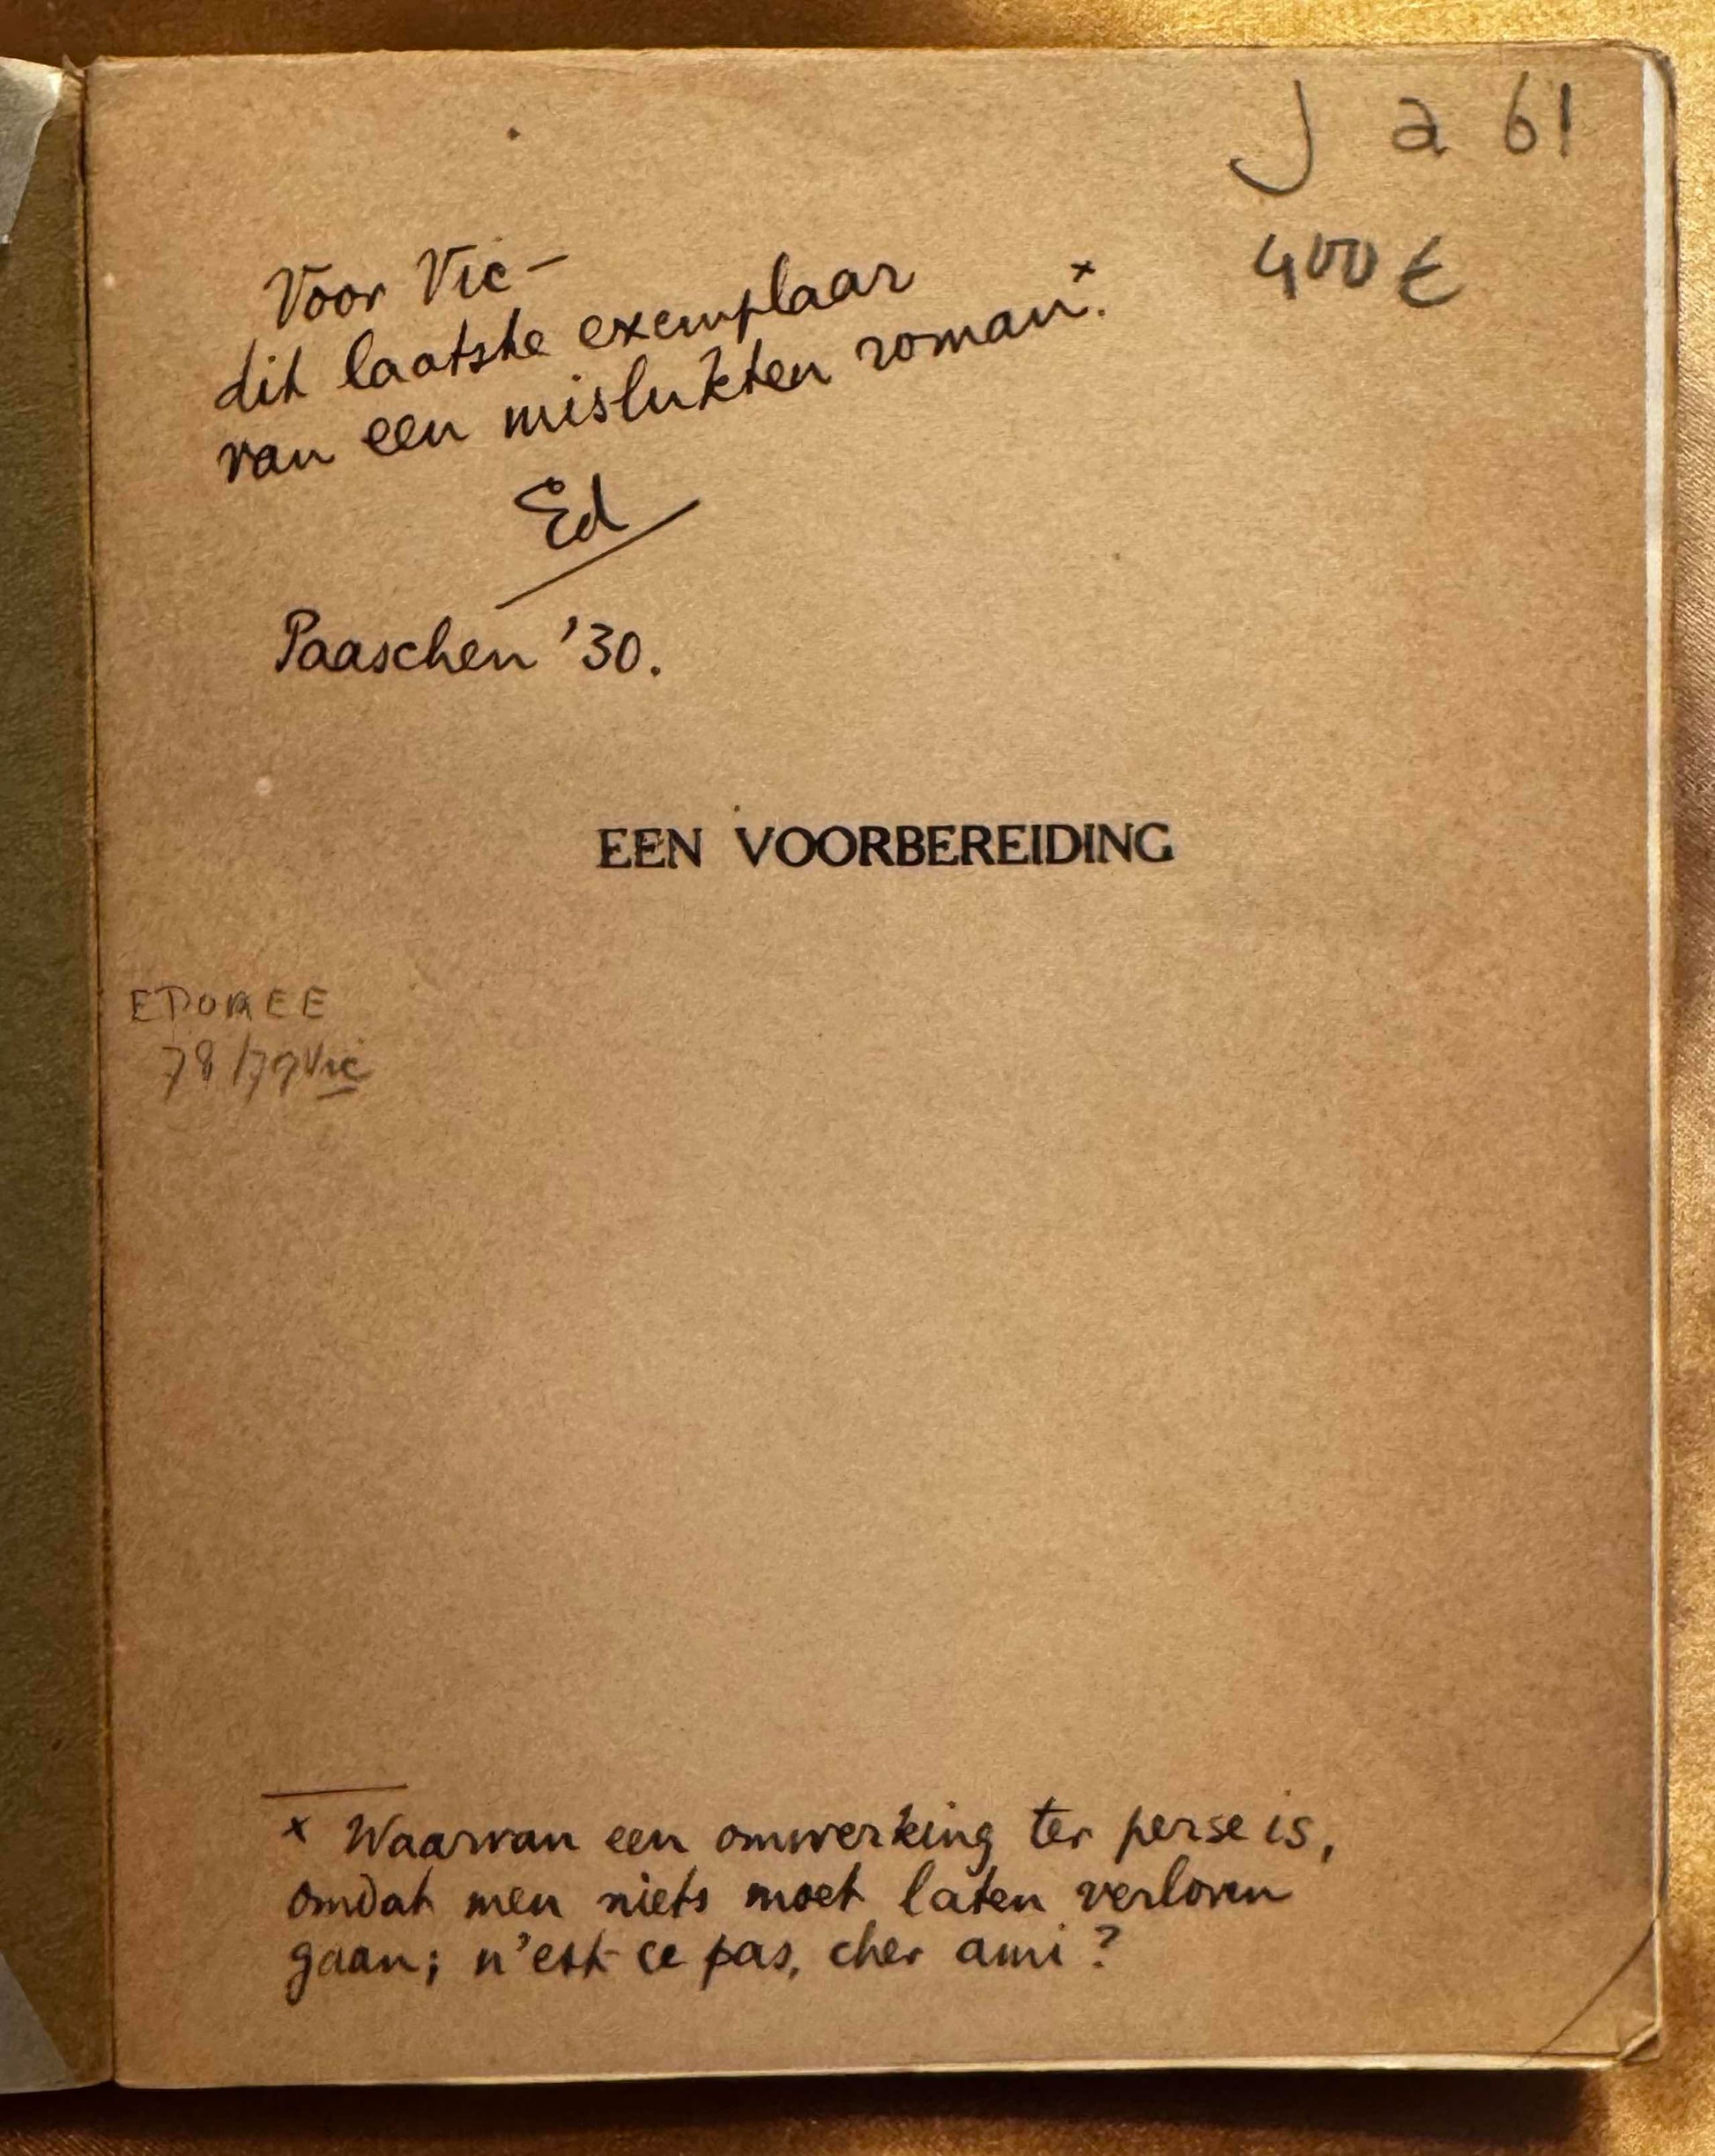 J a 61
400 €
Voor Vic –
dit laatste exemplaar
van een mislukten roman.ˣ
Ed
Paaschen '30.
EEN VOORBEREIDING
78/79 Vic
x Waarvan een omwerking ter perse is,
omdat men niets moet laten verloren
gaan; n'est-ce pas, cher ami?